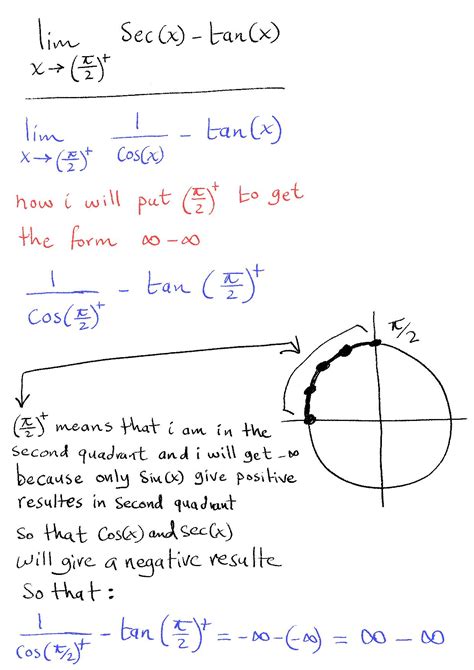 lim Sec(x) - tan(x)
x→(π/2)⁺
lim 1/cos(x) - tan(x)
x→(π/2)⁺
now i will put (π/2)⁺ to get
the form ∞ - ∞
1/Cos(π/2)⁺ - tan (π/2)⁺
π/2
(π/2)⁺ means that i am in the
second quadrant and i will get -∞
because only Sin(x) give positive
resultes in second quadrant
So that Cos(x) and sec(x)
will give a negative resulte
So that :
1/cos(π/2)⁺ - tan(π/2)⁺ = -∞ - (-∞) = ∞ - ∞